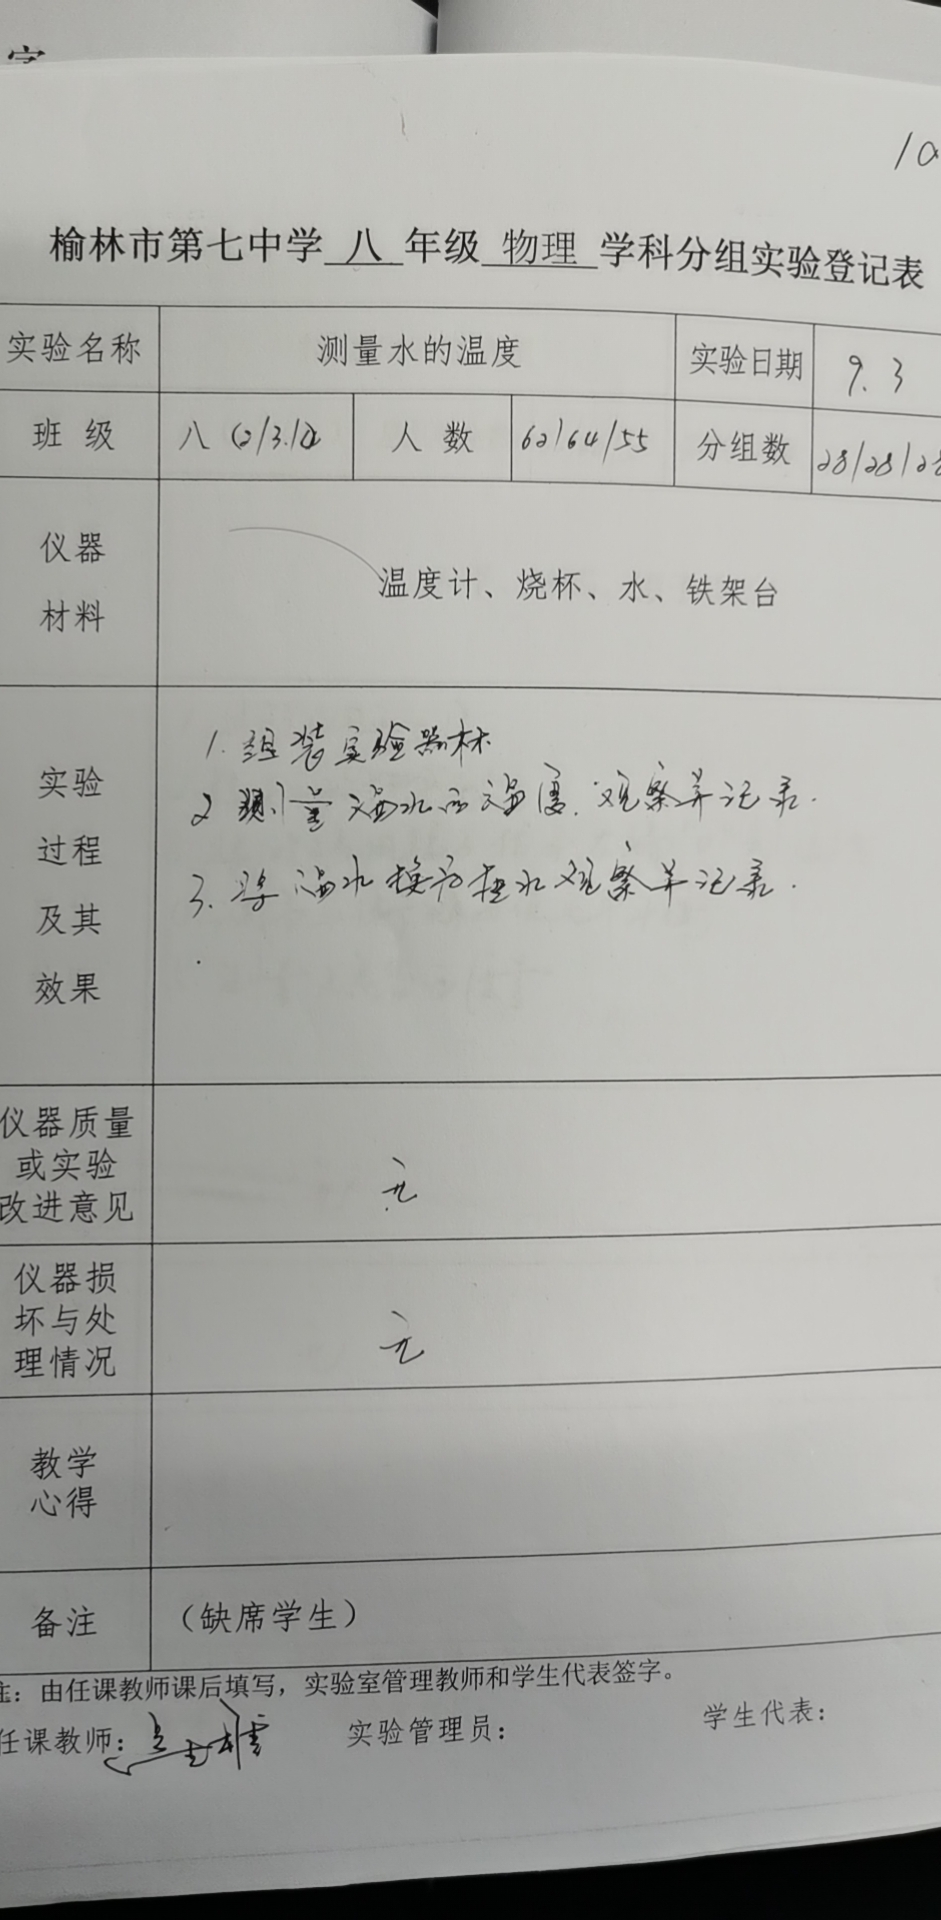 榆林市第七中学 八 年级 物理 学科分组实验登记表
实验名称 测量水的温度 实验日期 9.3
班级 八 人数 62/64/55 分组数 28/28/28
仪器
材料
温度计、烧杯、水、铁架台
实验
过程
及其
效果
1. 组装实验器材
2 测量温水的温度. 观察并记录.
3. 将温水换为热水观察并记录.
仪器质量
或实验
改进意见
无
仪器损
坏与处
理情况
无
教学
心得
备注 （缺席学生）
注：由任课教师课后填写，实验室管理教师和学生代表签字。
任课教师： 实验管理员： 学生代表：